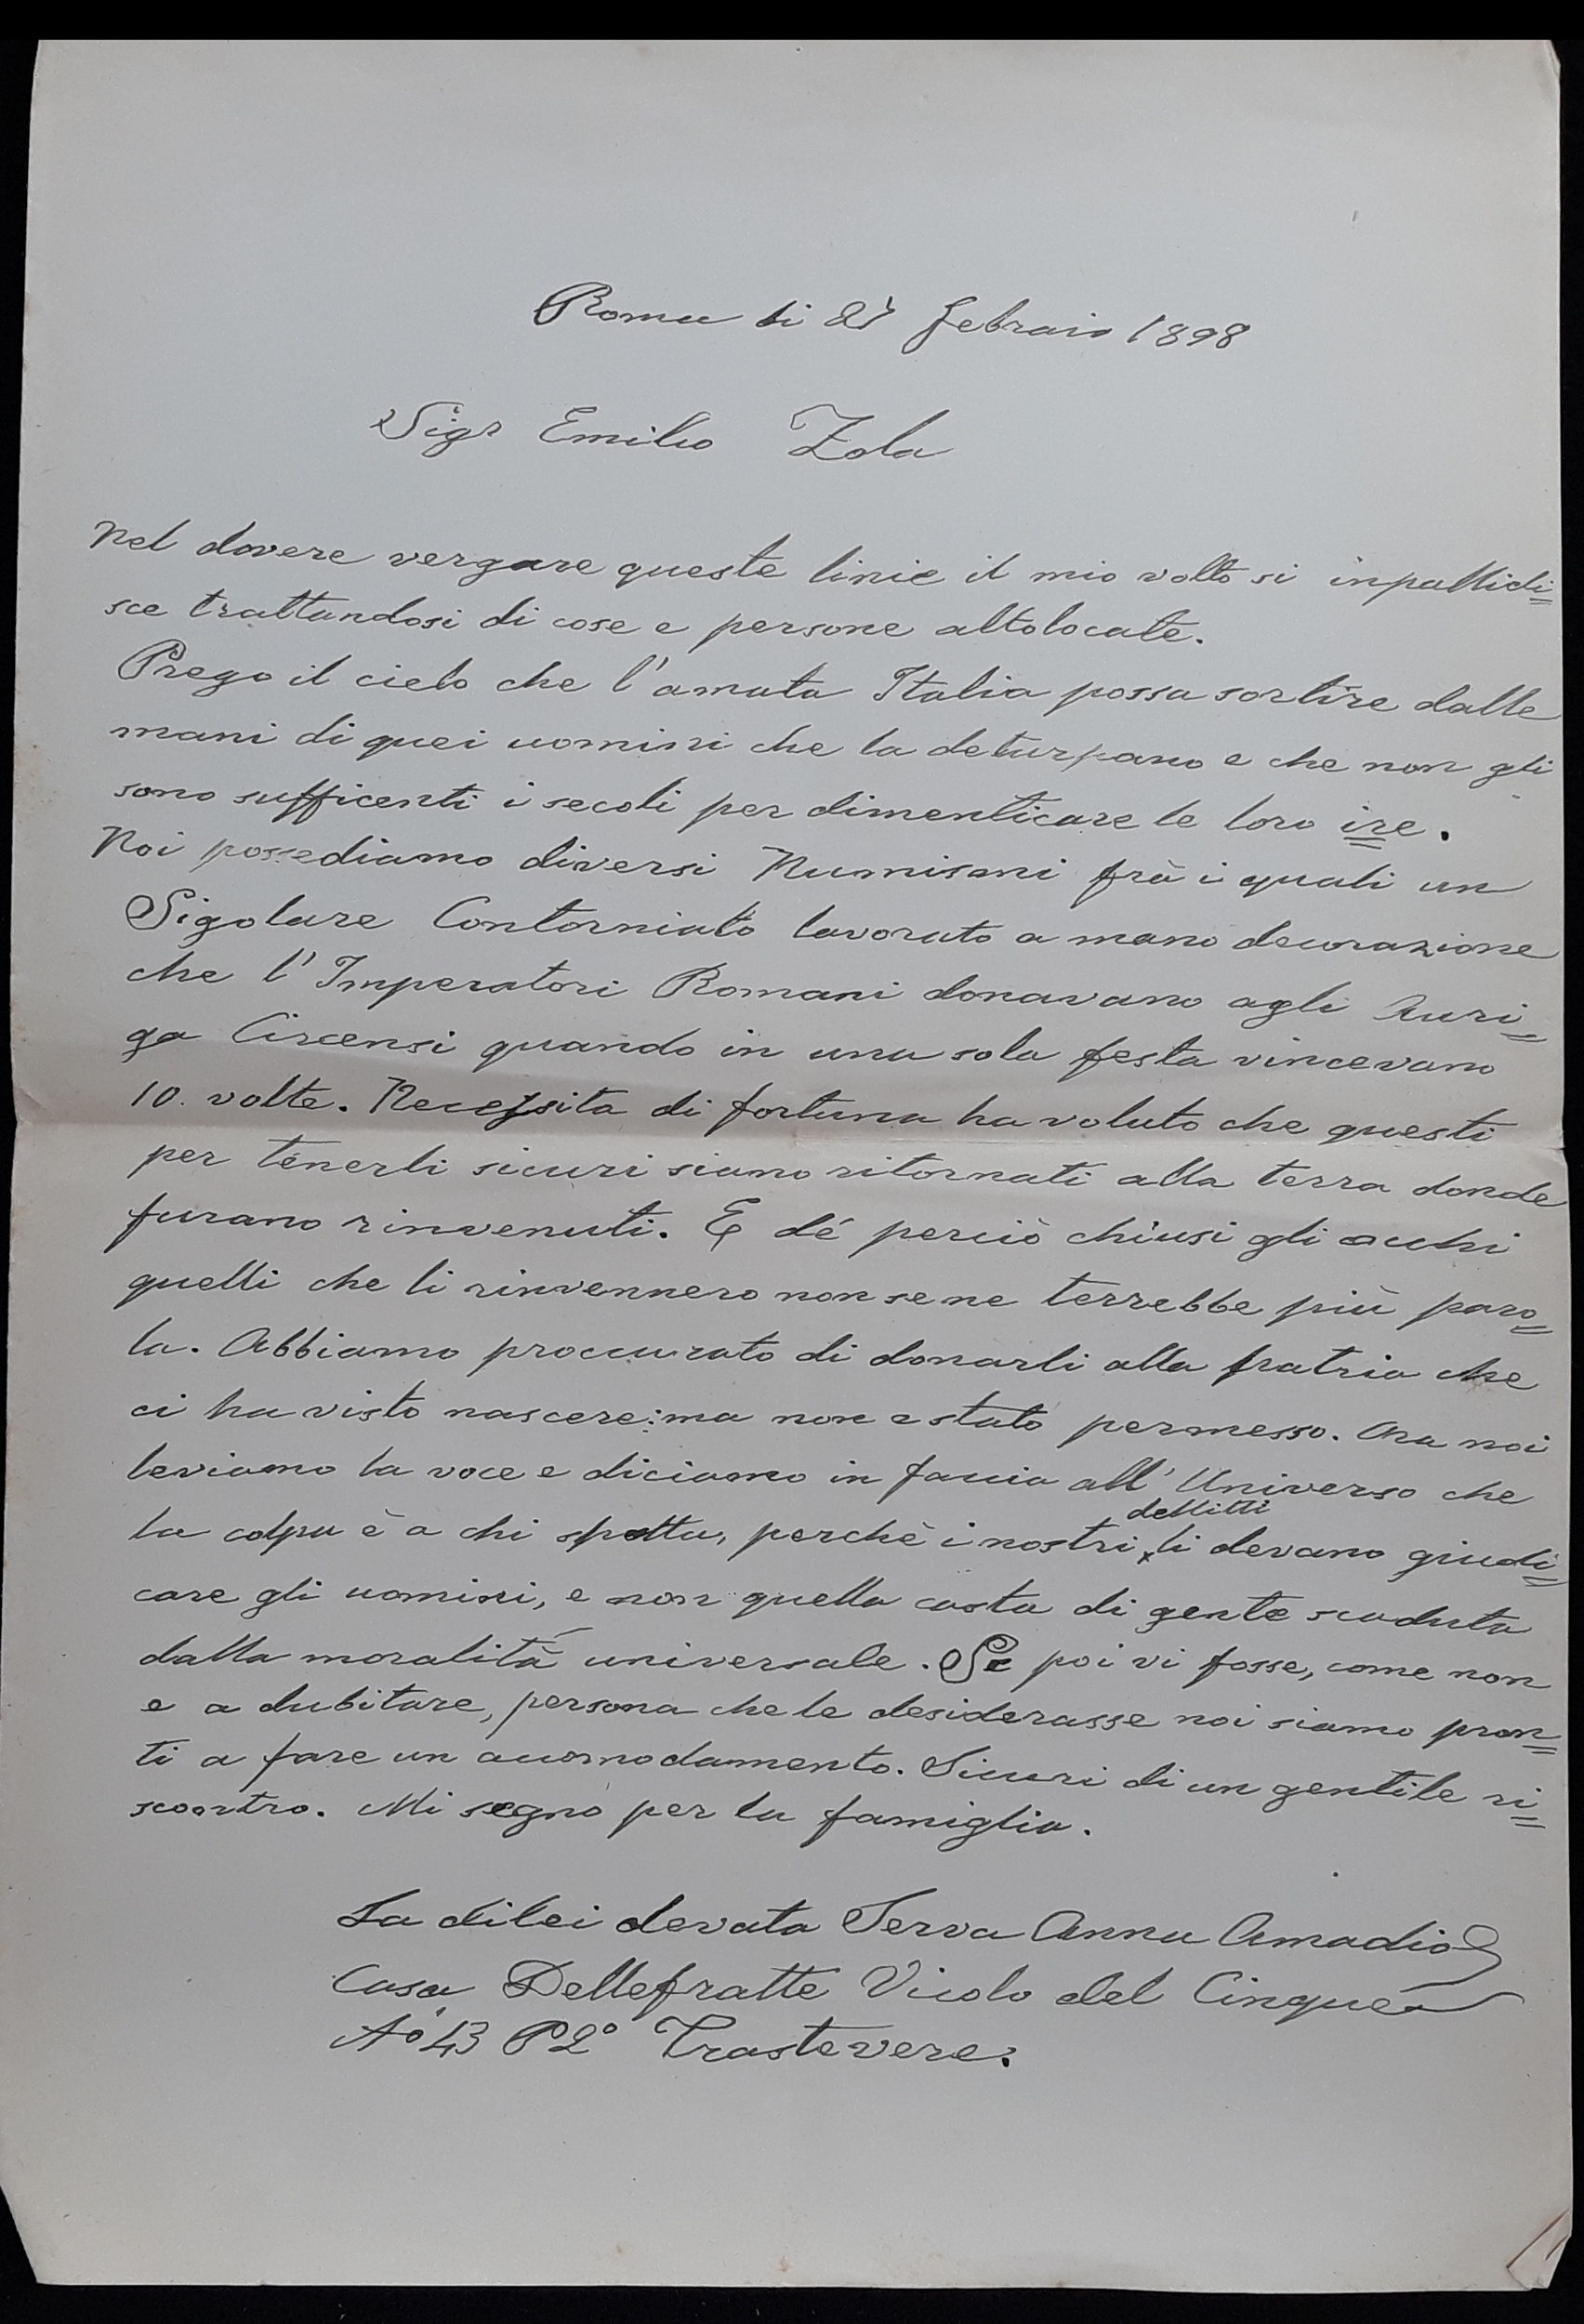 Roma li 27 febraio 1898
Sigr Emilio Zola
Nel dovere vergare queste linie il mio volto si inpallidi=
sce trattandosi di cose e persone altolocate.
Prego il cielo che l'amata Italia possa sortire dalle
mani di quei uomini che la deturpano e che non gli
sono sufficenti i secoli per dimenticare le loro ire.
Noi possediamo diversi Numismi frà i quali un
Sigolare Contorniato lavorato a mano decorazione
che l'Imperatori Romani donavano agli Auri=
ga Circensi quando in una sola festa vincevano
10. volte. Necessita di fortuna ha voluto che questi
per tenerli sicuri siano ritornati alla terra donde
furano rinvenuti. E dé perciò chiusi gli occhi
quelli che li rinvennero non se ne terrebbe più paro=
la. Abbiamo proccurato di donarli alla patria che
ci ha visto nascere: ma non e stato permesso. Ora noi
leviamo la voce e diciamo in faccia all'Universo che
la colpa è a chi spetta, perchè i nostri dellitti li devano giudi=
care gli uomini, e non quella casta di gente scaduta
dalla moralità universale. Se poi vi fosse, come non
e a dubitare, persona che le desiderasse noi siamo pron=
ti a fare un accomodamento. Sicuri di un gentile ri=
scontro. Mi segno per la famiglia.
La di lei devata Serva Anna Amadio
Casa Dellefratte Vicolo del Cinque
No 43 P 2° Trastevere.